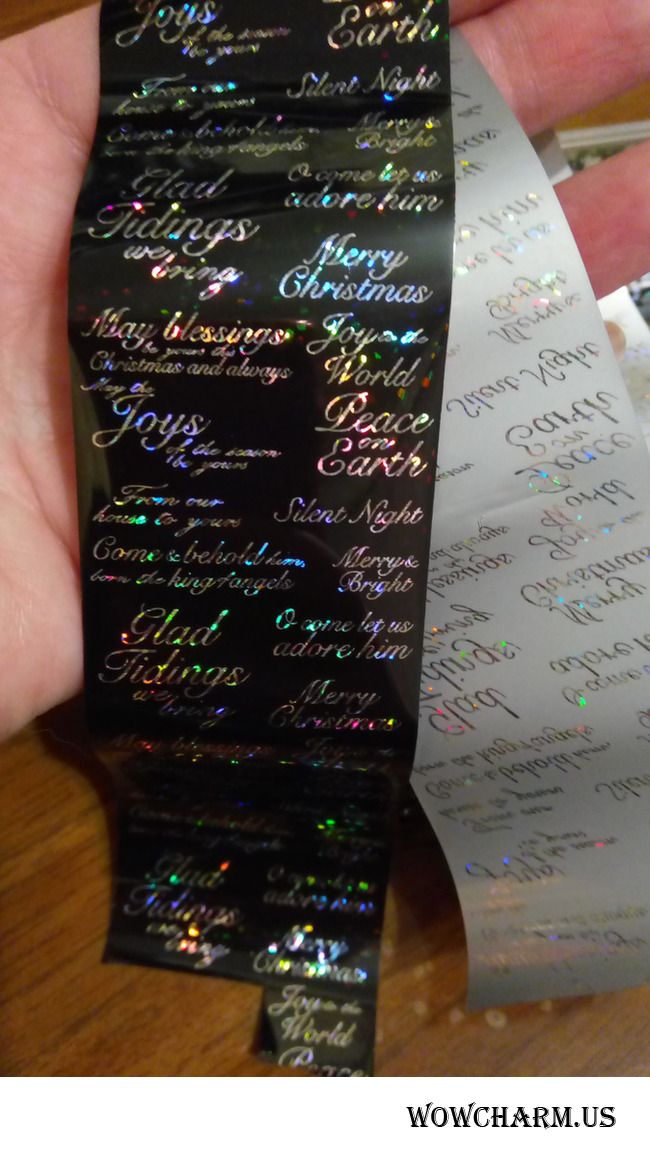 Joys
of the season
be yours
on
Earth
From our
house to yours
Silent Night
Come & behold him,
born the king of angels
Merry &
Bright
Glad
Tidings
we
bring
O come let us
adore him
Merry
Christmas
May blessings
be yours this
Christmas and always
Joy to the
World
May the
Joys
of the season
be yours
Peace
on
Earth
From our
house to yours
Silent Night
Come & behold him,
born the king of angels
Merry &
Bright
Glad
Tidings
we
bring
O come let us
adore him
Merry
Christmas
May blessings
Joy to the
Glad
Tidings
we
bring
O come let us
adore him
Merry
Christmas
Joy to the
World
Peace
Merry
Bright
Silent Night
Earth
on
Peace
World
Joy to the
Christmas
Merry
adore him
O come let us
bring
we
Tidings
Glad
WOWCHARM.US